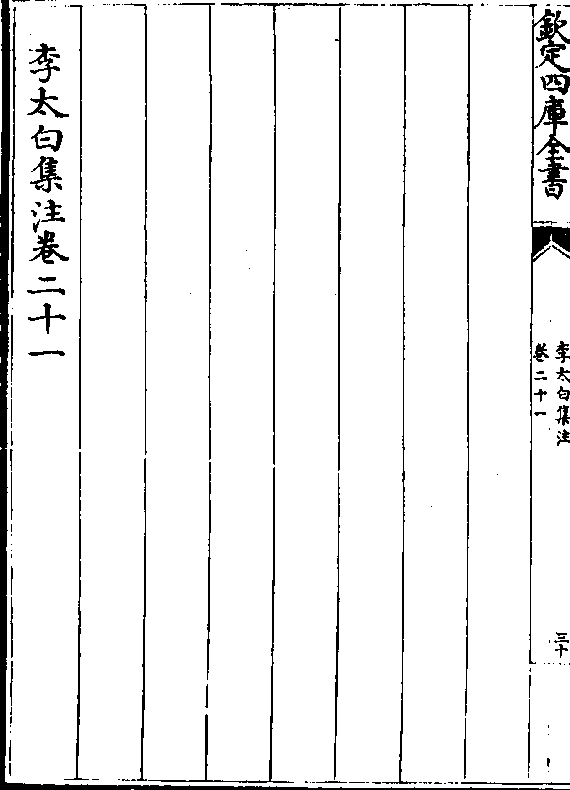 欽定四庫全書
李太白集注
卷二十一
三十
李太白集注卷二十一